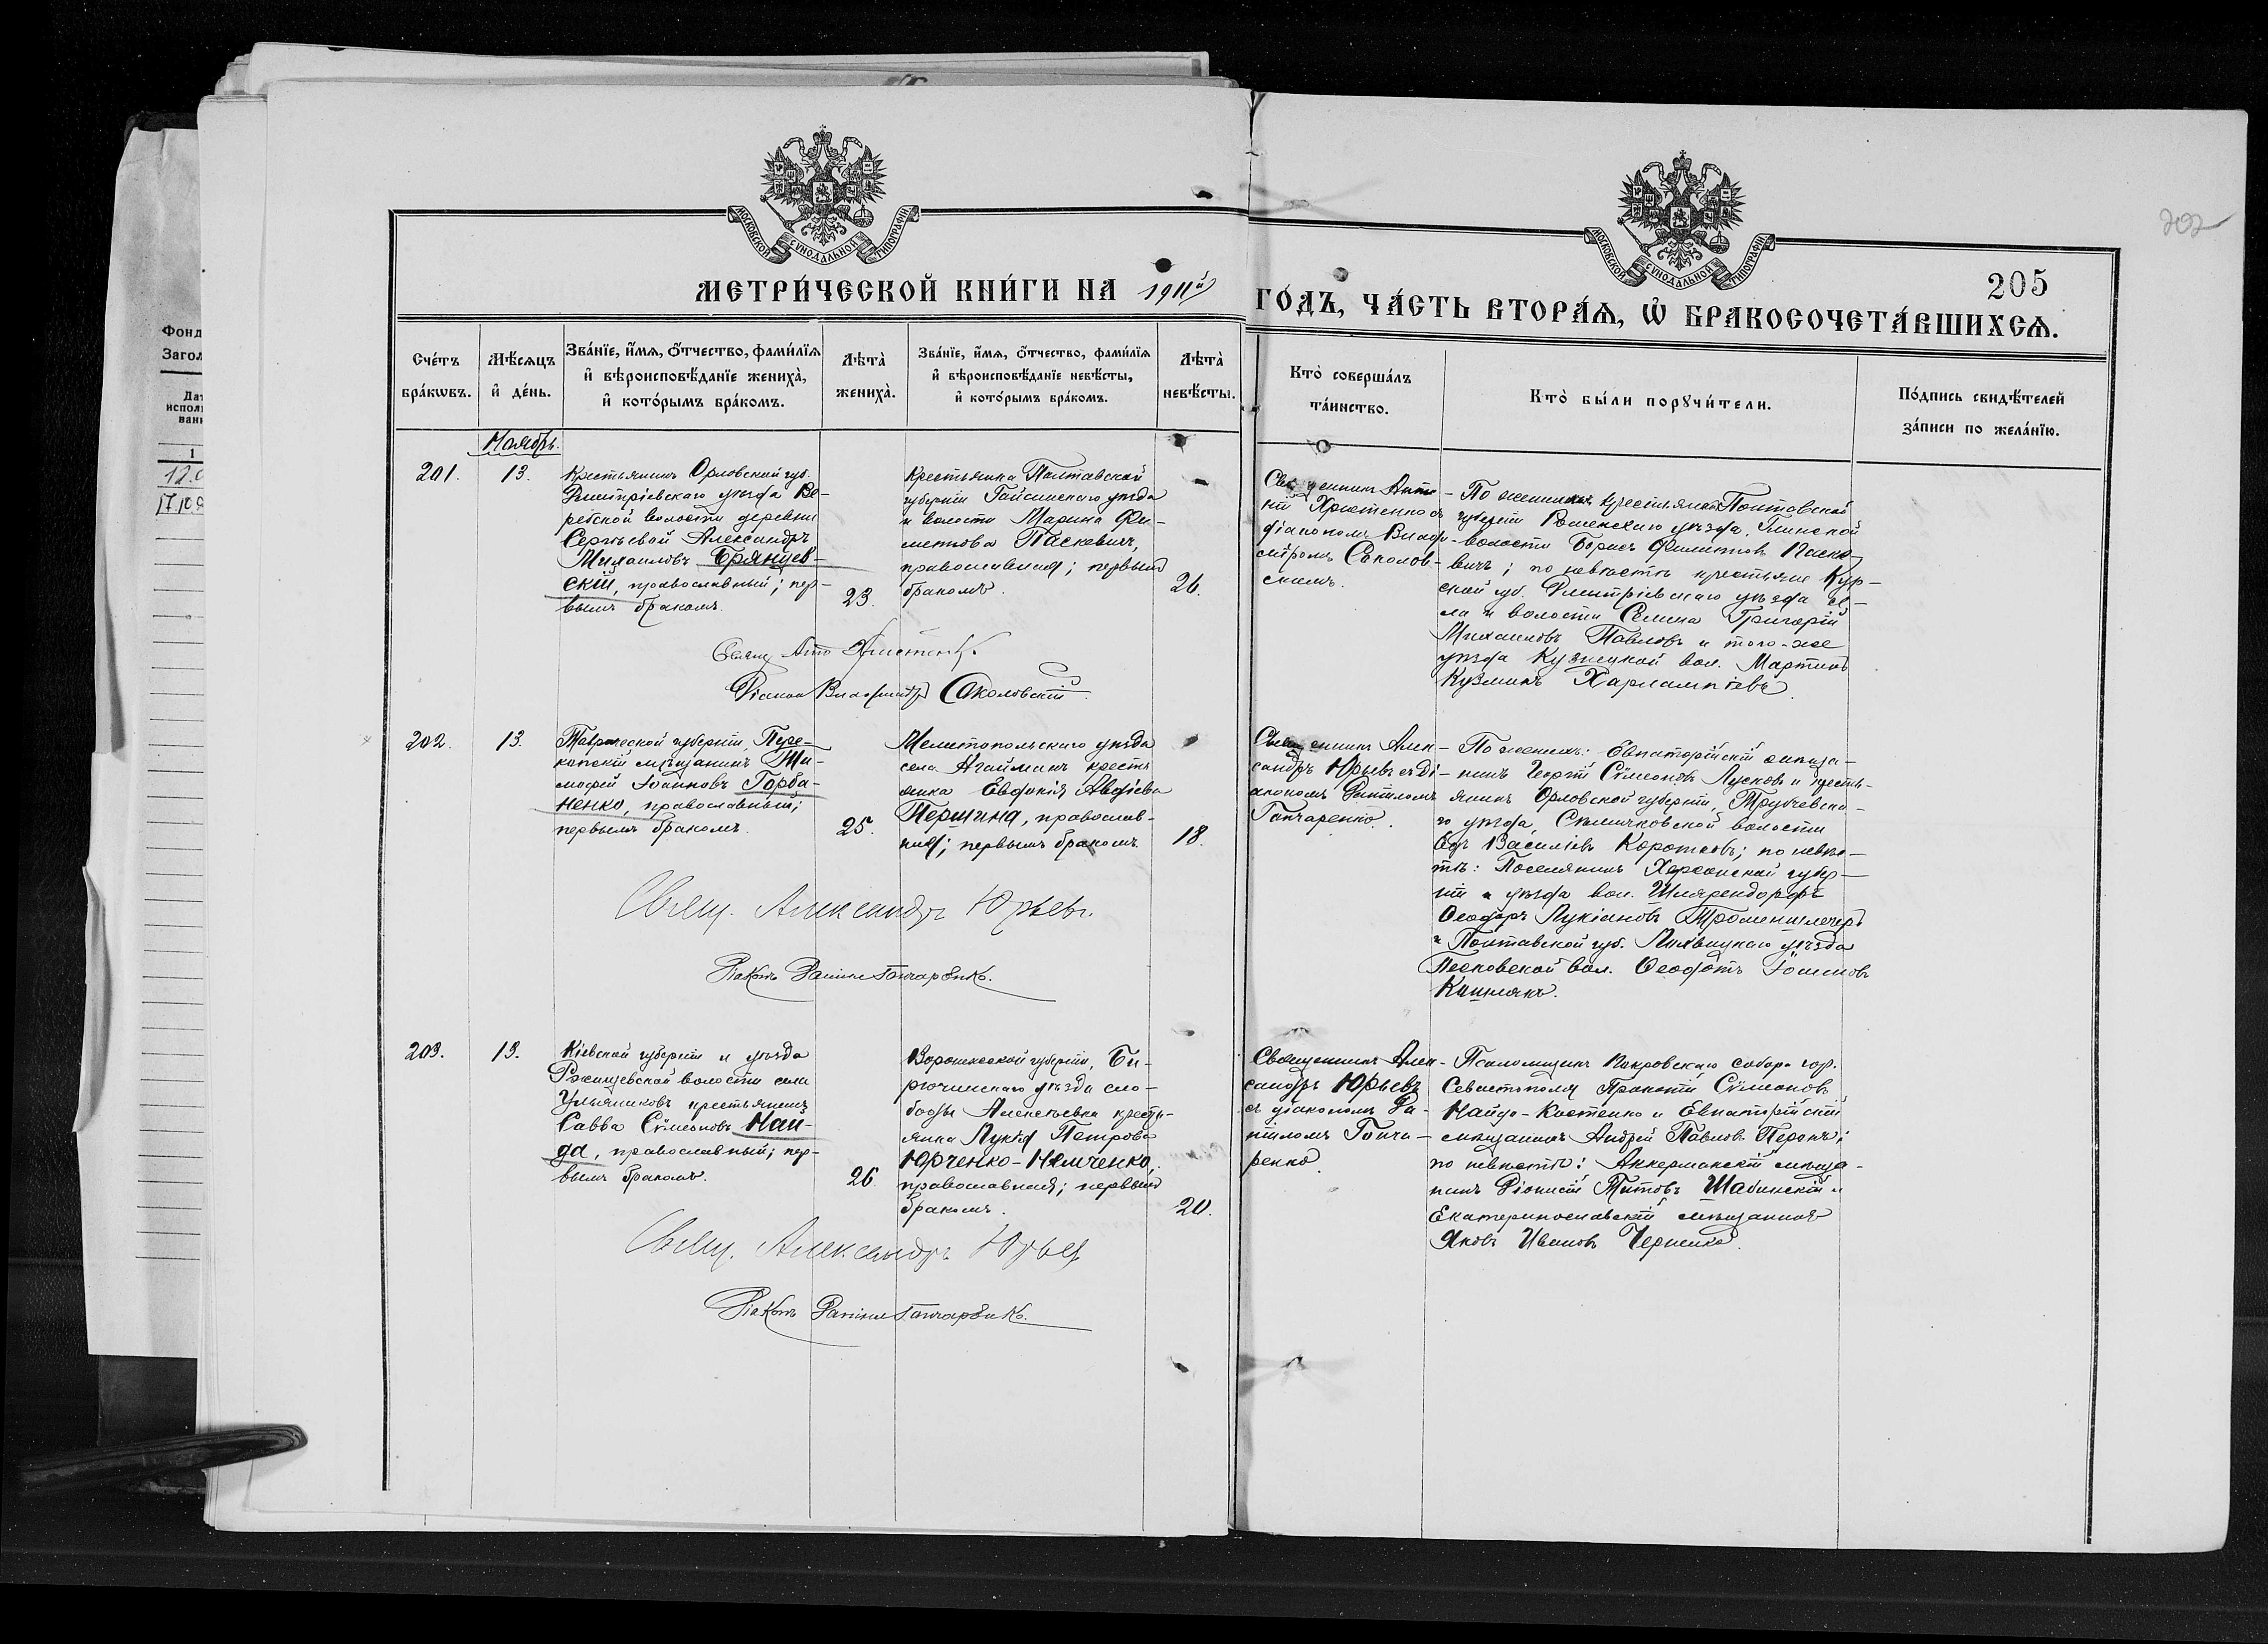 МОСКОВСКОЙ СУНОДАЛЬНОЙ ТИПОГРАФІИ
МЕТРИ́ЧЕСКОЙ КНИ́ГИ НА 1911й
МОСКОВСКОЙ СУНОДАЛЬНОЙ ТИПОГРАФІИ
ГО́ДЪ, ЧА́СТЬ ВТОРА́Ѧ, Ѡ҆ БРАКОСОЧЕТА́ВШИХСѦ.
205
202
Фонд
Загол
Дат
исполь
вані
1
Сче́тъ
бра́кѡвъ.
Мѣ́сѧцъ
и҆ де́нь.
Зва́нїе, и҆́мѧ, ѻ҆́тчество, фами́лїѧ
и҆ вѣроисповѣ́данїе жениха̀,
и҆ кото́рымъ бра́комъ.
Лѣта̀
жениха̀.
Зва́нїе, и҆́мѧ, ѻ҆́тчество, фами́лїѧ
и҆ вѣроисповѣ́данїе невѣ́сты,
и҆ кото́рымъ бра́комъ.
Лѣта̀
невѣ́сты.
Кто̀ соверша́лъ
та́инство.
Кто̀ бы́ли порꙋчи́тели.
По́дпись свидѣ́телей
за́писи по жела́нїю.
Ноябрь.
201.
13.
Крестьянинъ Орловской губ.
Дмитріевскаго уѣзда Ве-
ребской волости деревни
Сергѣевой Александръ
Михаиловъ Брянцев-
скій, православный; пер-
вымъ бракомъ.
23.
Крестьянка Полтавской
губерніи Гайсинскаго уѣзда
и волости Марина Фи-
метова Паскевичъ,
православная; первымъ
бракомъ.
26.
Священникъ Анто-
ній Хрютенко съ
діакономъ Влади-
міромъ Соколов-
скимъ.
По женихѣ: крестьяне Полтавской
губерніи Роменскаго уѣзда, Глинской
волости Борисъ Филиповъ Паске-
вичъ; по невѣстѣ крестьяне Кур-
ской губ. Дмитріевскаго уѣзда се-
ла и волости Селина Григорій
Михаиловъ Павловъ и того-же
уѣзда Кузнецкой вол. Мартинъ
Кузминъ Харлампіевъ.
Діаконъ Владиміръ Соколовскій
202.
13.
Таврической губерніи, Пере-
копскій мѣщанинъ Ти-
мофей Іоанновъ Горба-
ненко, православный;
первымъ бракомъ.
25.
Мелитопольскаго уѣзда
села Агайманъ кресть
янка Евдокія Авдіева
Першина, православ-
ная; первымъ бракомъ.
18.
Священникъ Алек-
сандръ Юрьевъ съ ді-
акономъ Даніиломъ
Гончаренко.
По женихѣ: Евпаторійскій мѣща-
нинъ Георгій Сѵмеоновъ Лусковъ и кресть-
янинъ Орловской губерніи, Трубчевска-
го уѣзда, Салтычковской волости
Егоръ Василіевъ Коротковъ; по невѣс-
тѣ: Поселянинъ Херсонской губер-
ніи и уѣзда вол.
Ѳеодоръ Лукіановъ
и Полтавской губ. Лохвицкаго уѣзда
Песковской вол. Ѳеодотъ Іоанновъ
Свящ. Александръ Юрьевъ.
Діаконъ Даніилъ Гончаренко.
203.
13.
Кіевской губерніи и уѣзда
Ржищевской волости села
Ульяниковъ крестьянинъ
Савва Сѵмеоновъ Най-
да, православный; пер-
вымъ бракомъ.
26.
Воронежской губерніи, Би-
рюченскаго уѣзда сло-
боды Алексѣевка кресть-
янка Лукія Петрова
Юрченко-Нѣмченко,
православная; первымъ
бракомъ.
20.
Священникъ Алек-
сандръ Юрьевъ
съ діакономъ Да-
ніиломъ Гонча-
ренко.
Псаломщикъ Покровскаго собора гор.
Севастополя Прокопій Сѵмеоновъ
Найда-Костенко и Евпаторійскій
мѣщанинъ Андрей Павловъ Перонъ;
по невѣстѣ: Аккерманскій мѣща-
нинъ Діонисій Титовъ Шабинскій и
Екатеринославскій мѣщанинъ
Яковъ Ивановъ Черненко.
Свящ. Александръ Юрьевъ
Діаконъ Даніилъ Гончаренко.